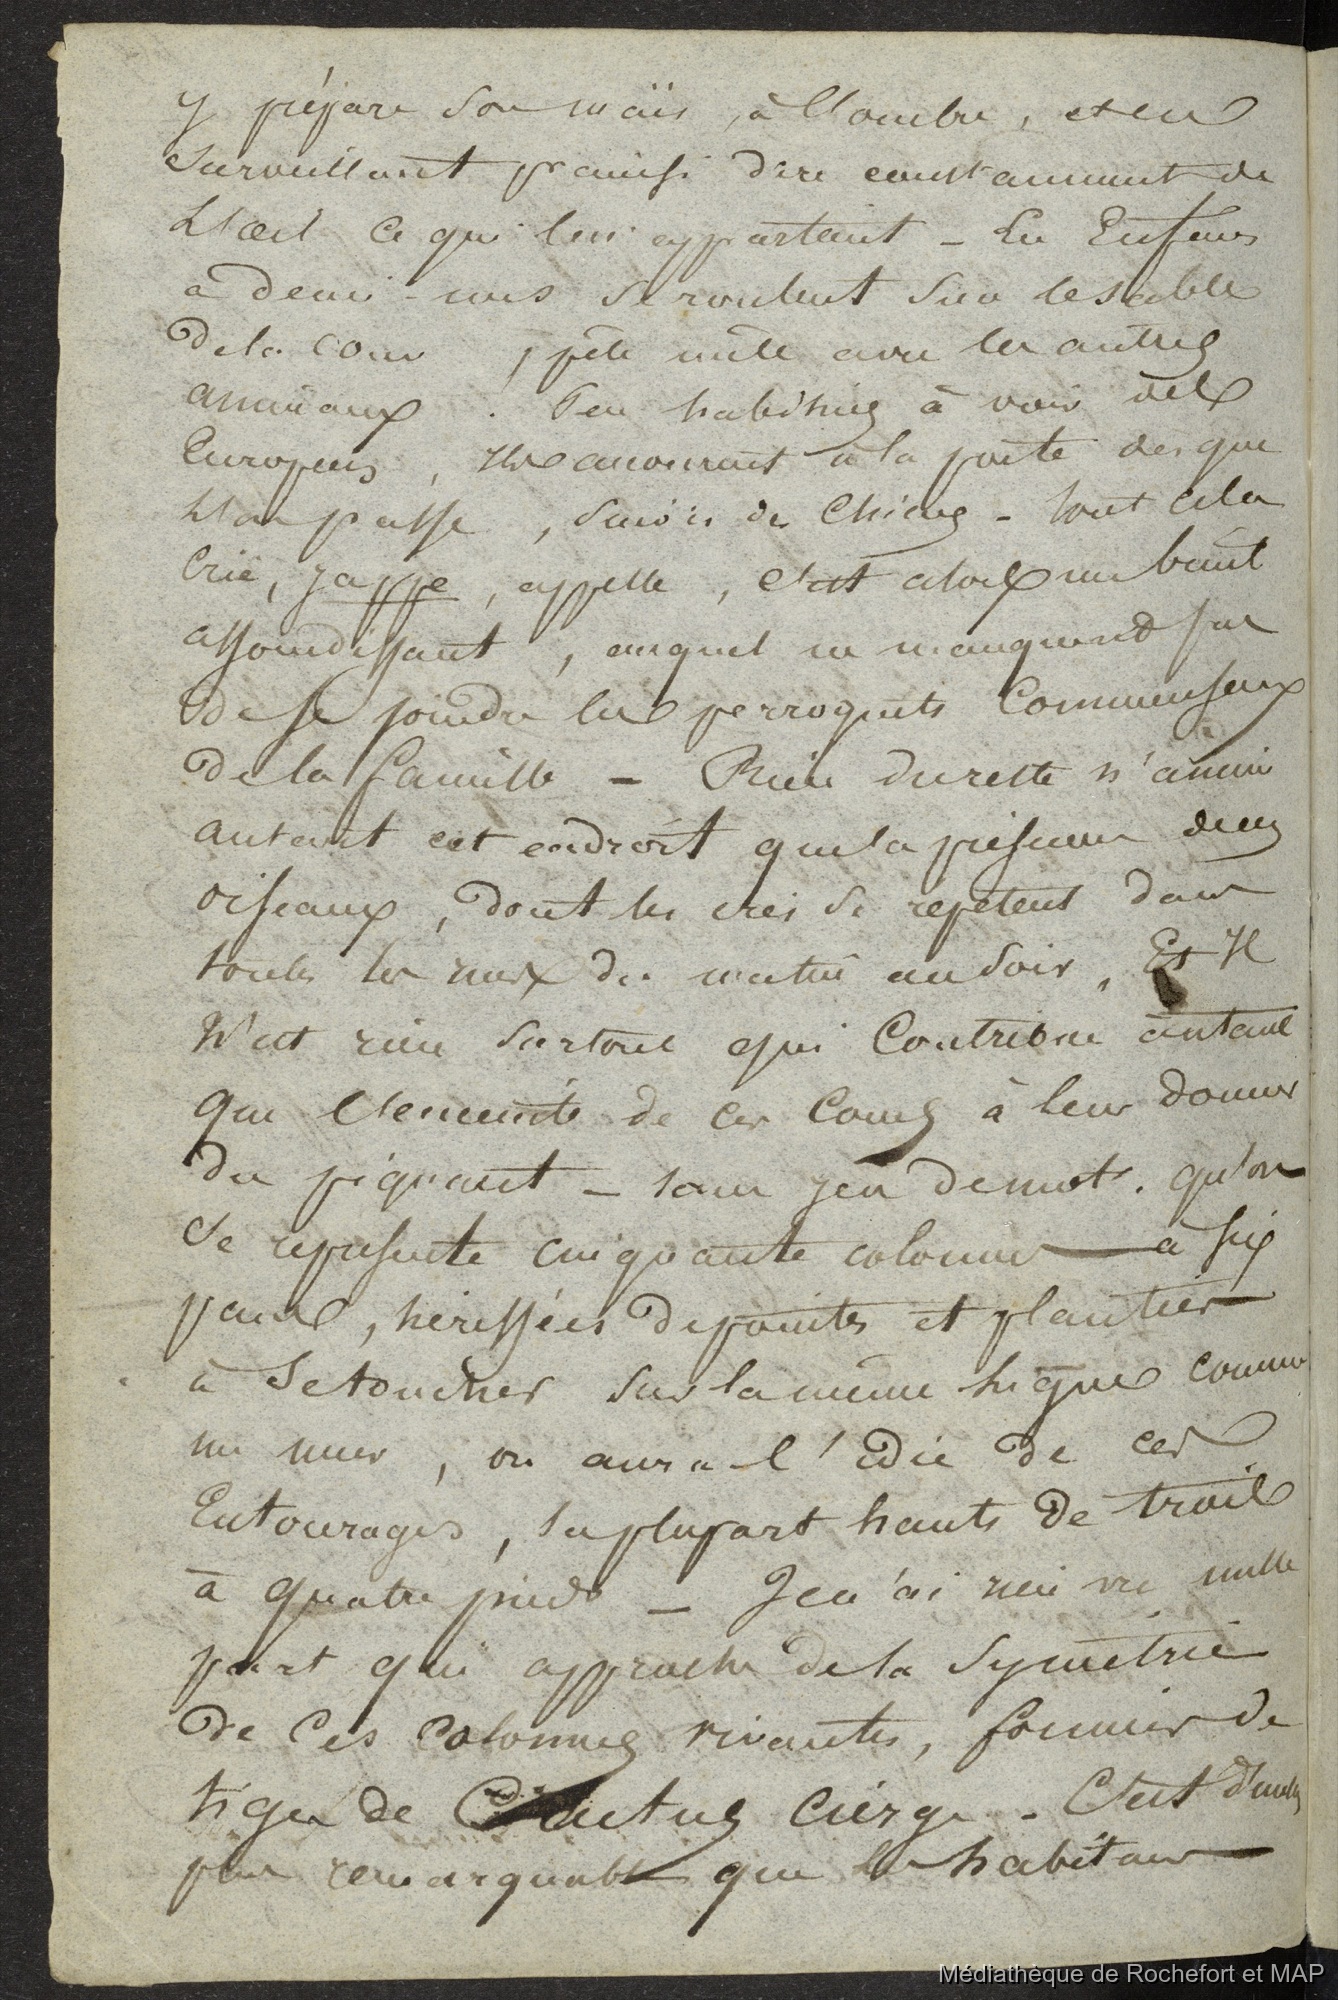 y prépare son maïs, à l'ombre, et en
surveillant pr ainsi dire constamment de
l'œil ce qui leur appartient – Les Enfans
à demi-nus se roulent sur le sable
de la cour, pêle mêle avec les autres
animaux. Peu habitués à voir des
Européens, Ils accourent à la porte dès que
l'on passe, suivis des chiens – tout cela
crie, jappe, appelle, c'est alors un bruit
assourdissant, auquel ne manquent pas
de se joindre les perroquets commensaux
de la famille – Rien du reste n'anime
autant cet endroit que la présence de ces
oiseaux, dont les cris se répètent dans
toutes les rues du matin au soir, Et Il
N'est rien surtout qui Contribue autant
que l'enceinte de ces Cours à leur donner
du piquant – sans jeu de mots. qu'on
se représente cinquante colonnes à six
pans, hérissées de pointes et plantées
à se toucher sur la même ligne comme
un mur, on aura l'idée de ces
Entourages, la plupart hauts de trois
à quatre pieds – Je n'ai rien vu nulle
part qui approche de la symétrie
de ces colonnes vivantes, formées de
tiges de Cactus cierge – C'est d'autant
plus remarquable que les habitans
Médiathèque de Rochefort et MAP